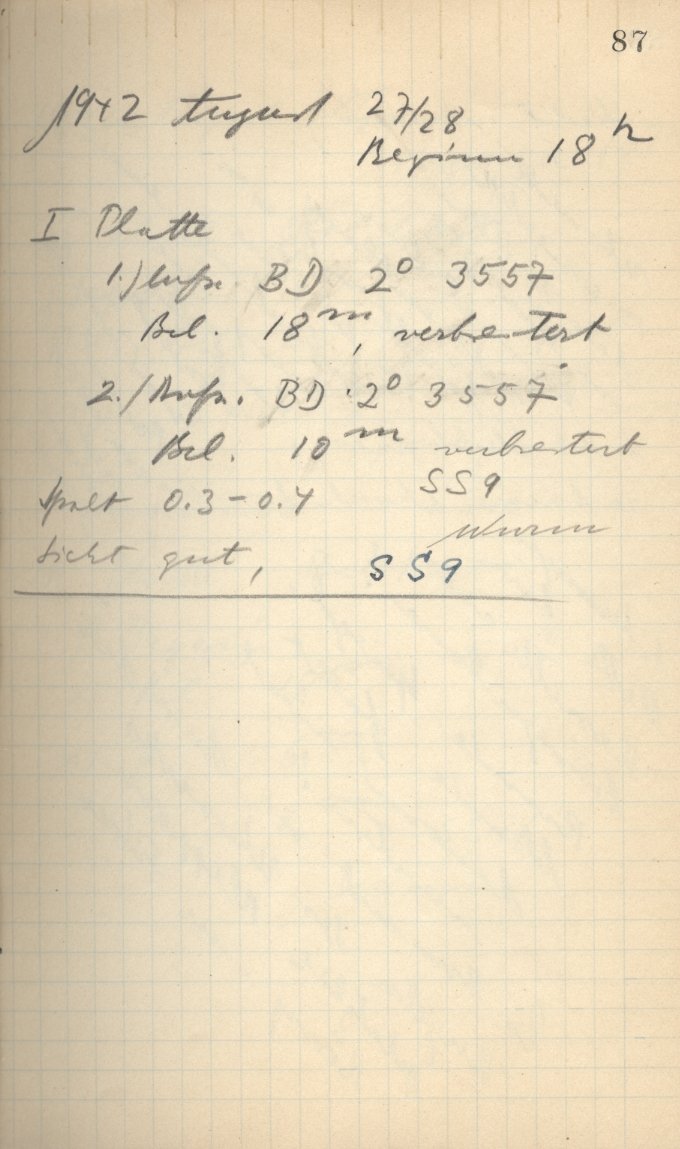 87
1942 August 27/28
Beginn 18h
I Platte
1.) Aufn. BD 2° 3557
Bel. 18m, verbreitert
2.) Aufn. BD 2° 3557
Bel. 10m verbreitert
Spalt 0.3-0.4 SS9
Wurm
Sicht gut, SS9